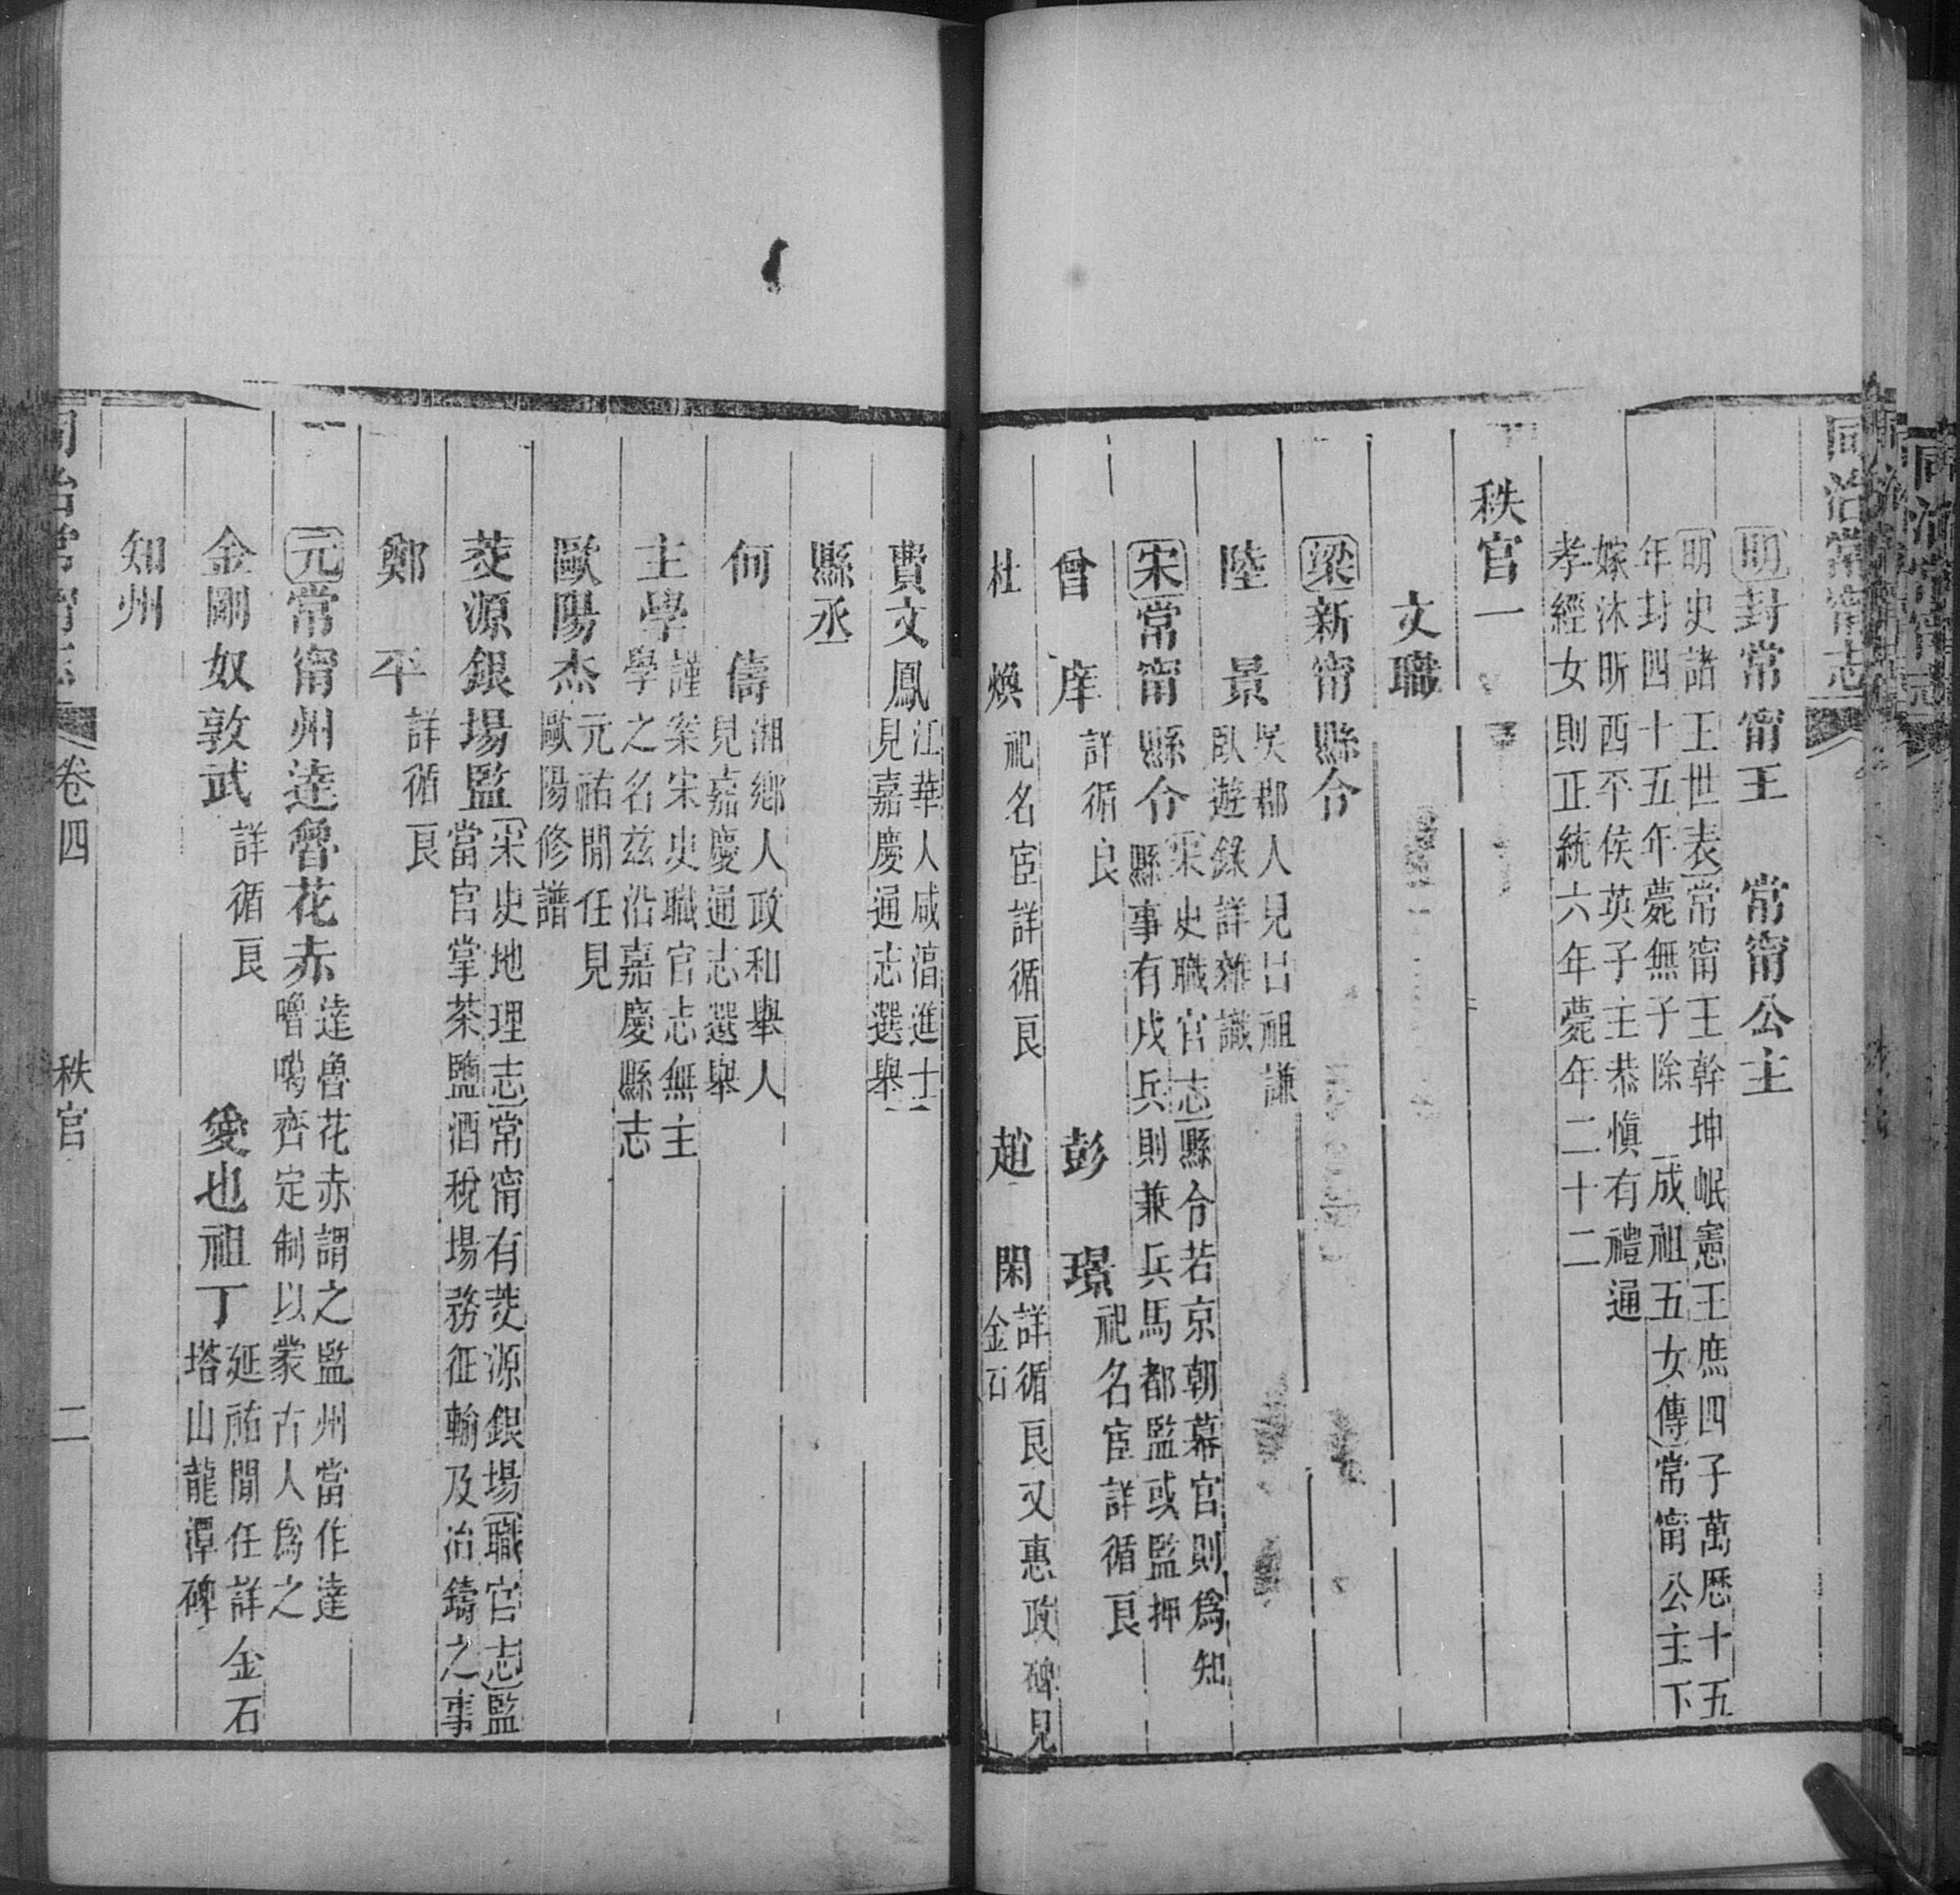 同治常甯志
明封常甯王　常甯公主
明史諸王世表常甯王幹坤岷憲王庶四子萬歷十五
年封四十五年薨無子除　成祖五女傳常甯公主下
嫁沐昕西平侯英子主恭慎有禮通
孝經女則正統六年薨年二十二
秩官一
文職
梁新甯縣令
陸景
吳郡人見呂祖謙
臥遊錄詳雜識
宋常甯縣令
宋史職官志縣令若京朝幕官則爲知
縣事有戍兵則兼兵馬都監或監押
曾庠　詳循良　彭璟　祀名宦詳循良
杜煥　祀名宦詳循良　趙閑
詳循良又惠政碑見
金石
費文鳳
江華人咸湻進士
見嘉慶通志選舉
縣丞
何儔
湘鄉人政和舉人
見嘉慶通志選舉
主學
謹案宋史職官志無主
學之名茲沿嘉慶縣志
歐陽杰
元祐閒任見
歐陽修譜
茭源銀場監
宋史地理志常甯有茭源銀場職官志監
當官掌茶鹽酒稅場務征輸及冶鑄之事
鄭平　詳循良
元常甯州達魯花赤
達魯花赤謂之監州當作達
嚕噶齊定制以蒙古人爲之
金剛奴敦武　詳循良　愛也祖丁
延祐閒任詳金石
塔山龍潭碑
知州
同治常甯志　卷四　秩官　二